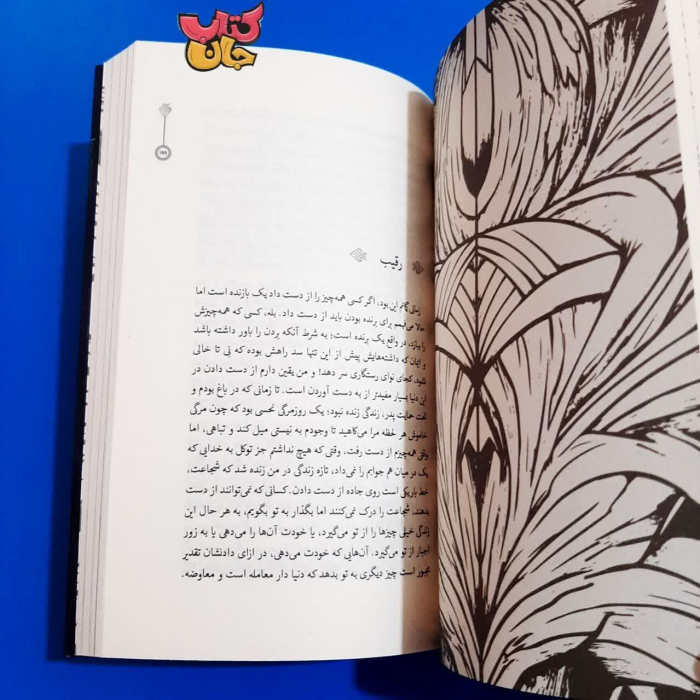 کتاب
جان
۱۹۹
رقیب
زمانی گمانم این بود، اگر کسی همه‌چیز را از دست داد یک بازنده است اما
حالا می‌فهمم برای برنده بودن باید از دست داد. بله، کسی که همه‌چیزش
را ببازد، در واقع یک برنده است؛ به شرط آنکه بردن را باور داشته باشد
و ایمان که داشته‌هایش پیش از این تنها سد راهش بوده که نِی تا خالی
نشود، کجای نوای رستگاری سر دهد! و من یقین دارم از دست دادن در
این دنیا بسیار مفیدتر از به دست آوردن است. تا زمانی که در باغ بودم و
تحت حمایت پدر، زندگی زنده نبود؛ یک روزمرگی نحسی بود که چون مرگی
خاموش هر لحظه مرا می‌کاهید تا وجودم به نیستی میل کند و تباهی، اما
وقتی همه‌چیزم از دست رفت، وقتی که هیچ نداشتم جز توکل به خدایی که
یک در میان هم جوابم را نمی‌داد، تازه زندگی در من زنده شد که شجاعت،
خط باریکی است روی جاده از دست دادن. کسانی که نمی‌توانند از دست
بدهند، شجاعت را درک نمی‌کنند اما بگذار به تو بگویم، به هر حال این
زندگی خیلی چیزها را از تو می‌گیرد، یا خودت آن‌ها را می‌دهی یا به زور
اجبار از تو می‌گیرد. آن‌هایی که خودت می‌دهی، در ازای دادنشان تقدیر
مجبور است چیز دیگری به تو بدهد که دنیا دار معامله است و معاوضه.